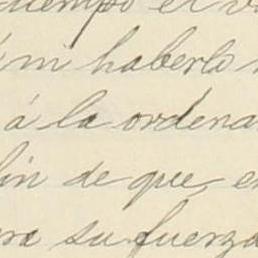 tiempo el v
in haberla
á la ordena
fin de que e
ra su fuerza